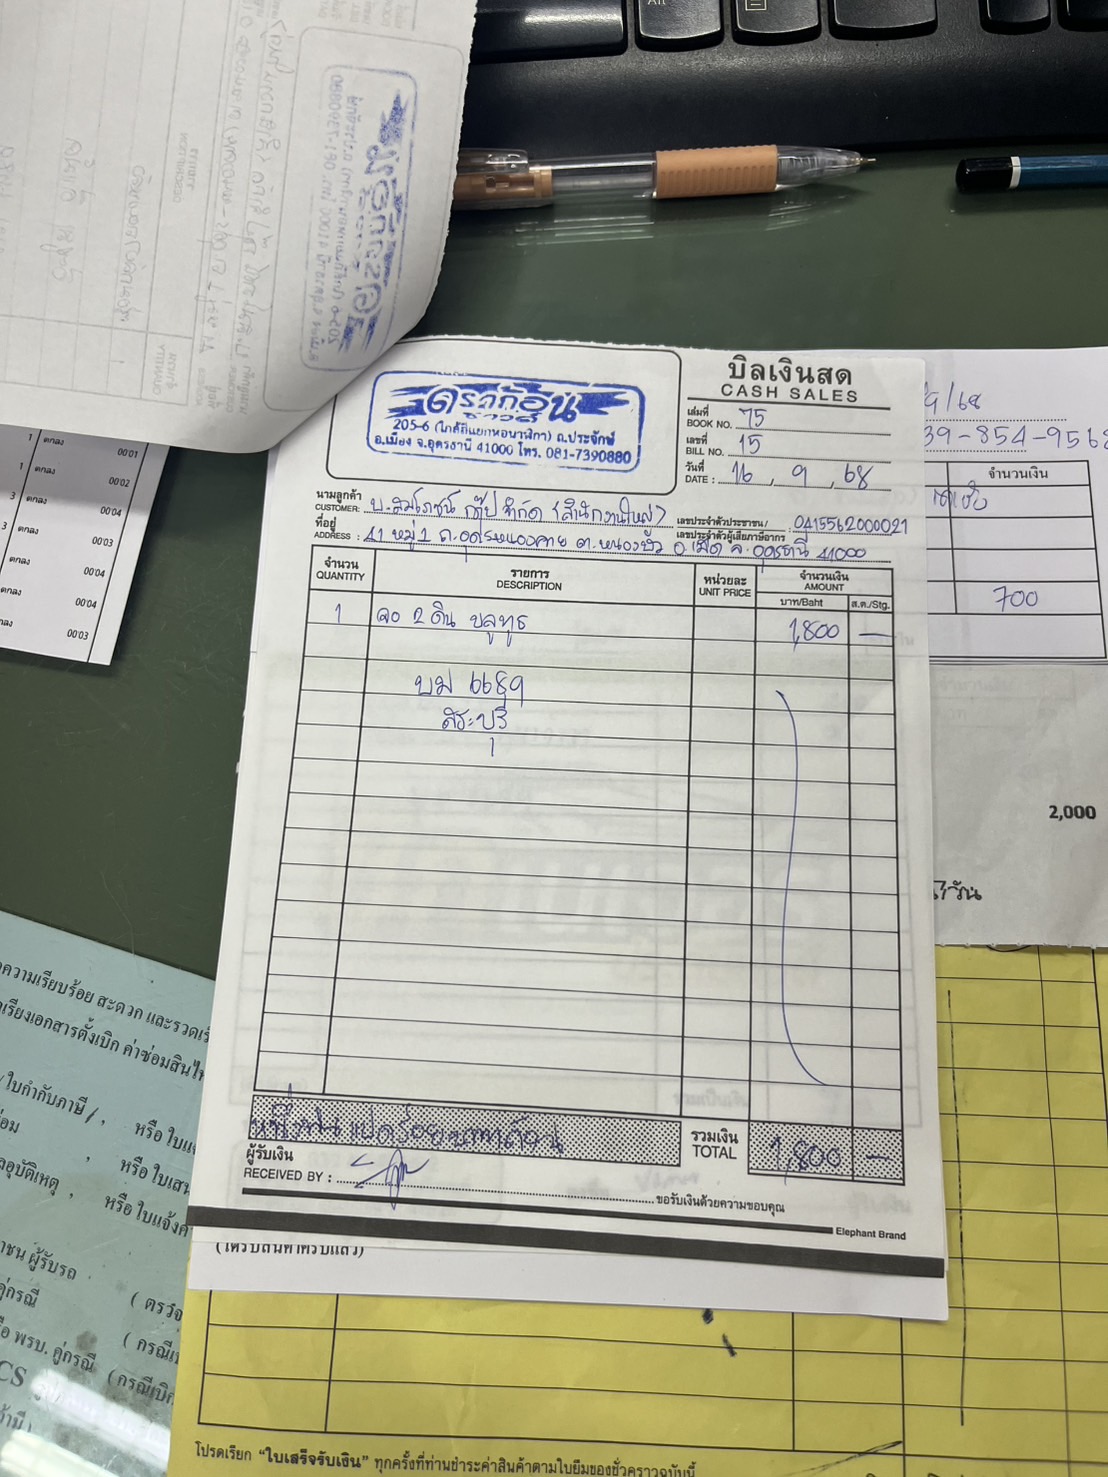 บิลเงินสด
CASH SALES
ดราก้อน
ซาวด์
205-6 (ใกล้สี่แยกหอนาฬิกา) ถ.ประจักษ์
อ.เมือง จ.อุดรธานี 41000 โทร. 081-7390880
เล่มที่ BOOK NO. 75
เลขที่ BILL NO. 15
วันที่ DATE : 16 , 9 , 68
นามลูกค้า CUSTOMER: บ.สมโภชน์ กรุ๊ป จำกัด (สำนักงานใหญ่) เลขประจำตัวประชาชน/เลขประจำตัวผู้เสียภาษีอากร : 0415562000021
ที่อยู่ ADDRESS : 41 หมู่ 1 ถ.อุดรหนองคาย ต.หมากแข้ง อ.เมือง จ.อุดรธานี 41000
จำนวน QUANTITY รายการ DESCRIPTION หน่วยละ UNIT PRICE จำนวนเงิน AMOUNT
บาท/Baht ส.ต./Stg.
1 จอ 2 ดิน บลูทูธ 1,800 —
บม 6689
สระบุรี
หนึ่งพันแปดร้อยบาทถ้วน รวมเงิน TOTAL 1,800 —
ผู้รับเงิน
RECEIVED BY :
ขอรับเงินด้วยความขอบคุณ
Elephant Brand
/9/68
39-854-9568
จำนวนเงิน
700
2,000
1 ตกลง 00'01
1 ตกลง 00'02
3 ตกลง 00'04
3 ตกลง 00'03
ตกลง 00'04
ตกลง 00'04
00'03
ความเรียบร้อย สะดวก และรวดเร็
เรียงเอกสารตั้งเบิก ค่าซ่อมสินไห
/ ใบกำกับภาษี / , หรือ ใบแ
อุบัติเหตุ , หรือ ใบเสน
หรือ ใบแจ้งค
ชน ผู้รับรถ ( ตรวจ
คู่กรณี ( กรณี
อ พรบ. คู่กรณี ( กรณีเบิก
โปรดเรียก “ใบเสร็จรับเงิน” ทุกครั้งที่ท่านชำระค่าสินค้าตามใบยืมของชั่วคราวฉบับนี้